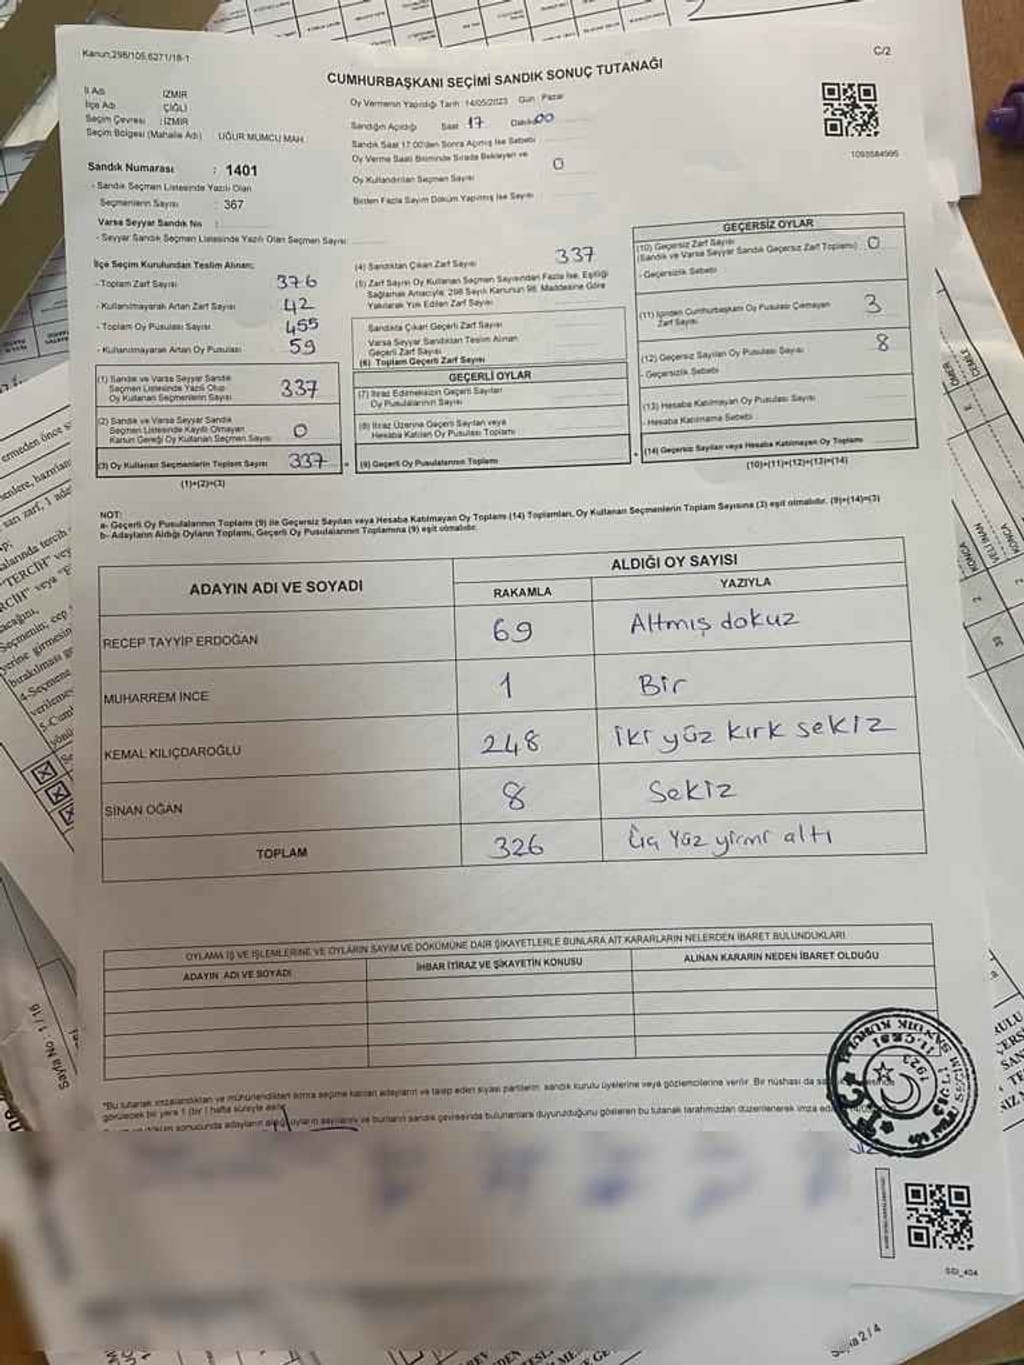 Kanun;298/105,6271/18-1
C/2
CUMHURBAŞKANI SEÇİMİ SANDIK SONUÇ TUTANAĞI
İl Adı İZMİR
İlçe Adı ÇİĞLİ
Seçim Çevresi : İZMİR
Seçim Bölgesi (Mahalle Adı) UĞUR MUMCU MAH.
Sandık Numarası : 1401
- Sandık Seçmen Listesinde Yazılı Olan
Seçmenlerin Sayısı : 367
Varsa Seyyar Sandık No :
- Seyyar Sandık Seçmen Listesinde Yazılı Olan Seçmen Sayısı
Oy Vermenin Yapıldığı Tarih :14/05/2023 Gün : Pazar
Sandığın Açıldığı Saat 17 Dakika 00
Sandık Saat 17.00'den Sonra Açılmış İse Sebebi
Oy Verme Saati Bitiminde Sırada Bekleyen ve
Oy Kullandırılan Seçmen Sayısı 0
Birden Fazla Sayım Döküm Yapılmış İse Sayısı
1093584995
İlçe Seçim Kurulundan Teslim Alınan;
- Toplam Zarf Sayısı 376
- Kullanılmayarak Artan Zarf Sayısı 42
- Toplam Oy Pusulası Sayısı 455
- Kullanılmayarak Artan Oy Pusulası 59
(1) Sandık ve Varsa Seyyar Sandık
Seçmen Listesinde Yazılı Olup
Oy Kullanan Seçmenlerin Sayısı 337
(2) Sandık ve Varsa Seyyar Sandık
Seçmen Listesinde Kayıtlı Olmayan
Kanun Gereği Oy Kullanan Seçmen Sayısı 0
(3) Oy Kullanan Seçmenlerin Toplam Sayısı 337
(1)+(2)=(3)
(4) Sandıktan Çıkan Zarf Sayısı 337
(5) Zarf Sayısı Oy Kullanan Seçmen Sayısından Fazla İse, Eşitliği
Sağlamak Amacıyla; 298 Sayılı Kanunun 98. Maddesine Göre
Yakılarak Yok Edilen Zarf Sayısı
Sandıkta Çıkan Geçerli Zarf Sayısı
Varsa Seyyar Sandıktan Teslim Alınan
Geçerli Zarf Sayısı
(6) Toplam Geçerli Zarf Sayısı
GEÇERLİ OYLAR
(7) İtiraz Edilmeksizin Geçerli Sayılan
Oy Pusulalarının Sayısı
(8) İtiraz Üzerine Geçerli Sayılan veya
Hesaba Katılan Oy Pusulası Toplamı
(9) Geçerli Oy Pusulalarının Toplamı
GEÇERSİZ OYLAR
(10) Geçersiz Zarf Sayısı
(Sandık ve Varsa Seyyar Sandık Geçersiz Zarf Toplamı) 0
- Geçersizlik Sebebi
(11) İçinden Cumhurbaşkanı Oy Pusulası Çıkmayan
Zarf Sayısı 3
(12) Geçersiz Sayılan Oy Pusulası Sayısı 8
- Geçersizlik Sebebi
(13) Hesaba Katılmayan Oy Pusulası Sayısı
- Hesaba Katılmama Sebebi
(14) Geçersiz Sayılan veya Hesaba Katılmayan Oy Toplamı
(10)+(11)+(12)+(13)=(14)
NOT:
a- Geçerli Oy Pusulalarının Toplamı (9) ile Geçersiz Sayılan veya Hesaba Katılmayan Oy Toplamı (14) Toplamları, Oy Kullanan Seçmenlerin Toplam Sayısına (3) eşit olmalıdır. (9)+(14)=(3)
b- Adayların Aldığı Oyların Toplamı, Geçerli Oy Pusulalarının Toplamına (9) eşit olmalıdır.
ADAYIN ADI VE SOYADI
ALDIĞI OY SAYISI
RAKAMLA YAZIYLA
RECEP TAYYİP ERDOĞAN 69 Altmış dokuz
MUHARREM İNCE 1 Bir
KEMAL KILIÇDAROĞLU 248 iki yüz kırk sekiz
SİNAN OĞAN 8 Sekiz
TOPLAM 326 Üç Yüz yirmi altı
OYLAMA İŞ VE İŞLEMLERİNE VE OYLARIN SAYIM VE DÖKÜMÜNE DAİR ŞİKAYETLERLE BUNLARA AİT KARARLARIN NELERDEN İBARET BULUNDUKLARI
ADAYIN ADI VE SOYADI İHBAR İTİRAZ VE ŞİKAYETİN KONUSU ALINAN KARARIN NEDEN İBARET OLDUĞU
*Bu tutanak imzalandıktan ve mühürlendikten sonra seçime katılan adayların ve talep eden siyasi partilerin sandık kurulu üyelerine veya gözlemcilerine verilir. Bir nüshası da
görülecek bir yere 1 (bir) hafta süreyle asılır.
sonucunda adayların aldığı oyların sayılarını ve bunların sandık çevresinde bulunanlara duyurulduğunu gösteren bu tutanak tarafımızdan düzenlenerek imza
1923
Sayfa No : 1 / 16
Sayfa 2 / 4